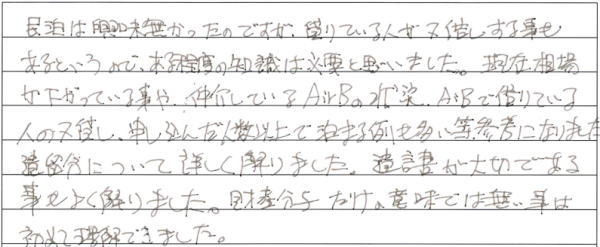 民泊は興味無かったのですが、借りている人が又貸しする事も
あるというので、ある程度の知識は必要と思いました。現在相場
が下がっている事や、仲介しているAirBの 、AirBで借りている
人の又貸し、申し込んだ人数以上で泊まる例も多い等参考になりました
遺留分について詳しく解りました。遺言書が大切である
事もよく解りました。財産分与だけの意味では無い事は
初めて理解できました。